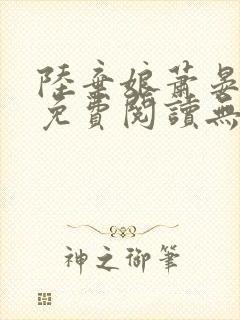 陸棄娘蕭晏
免費閱讀無
神之御筆